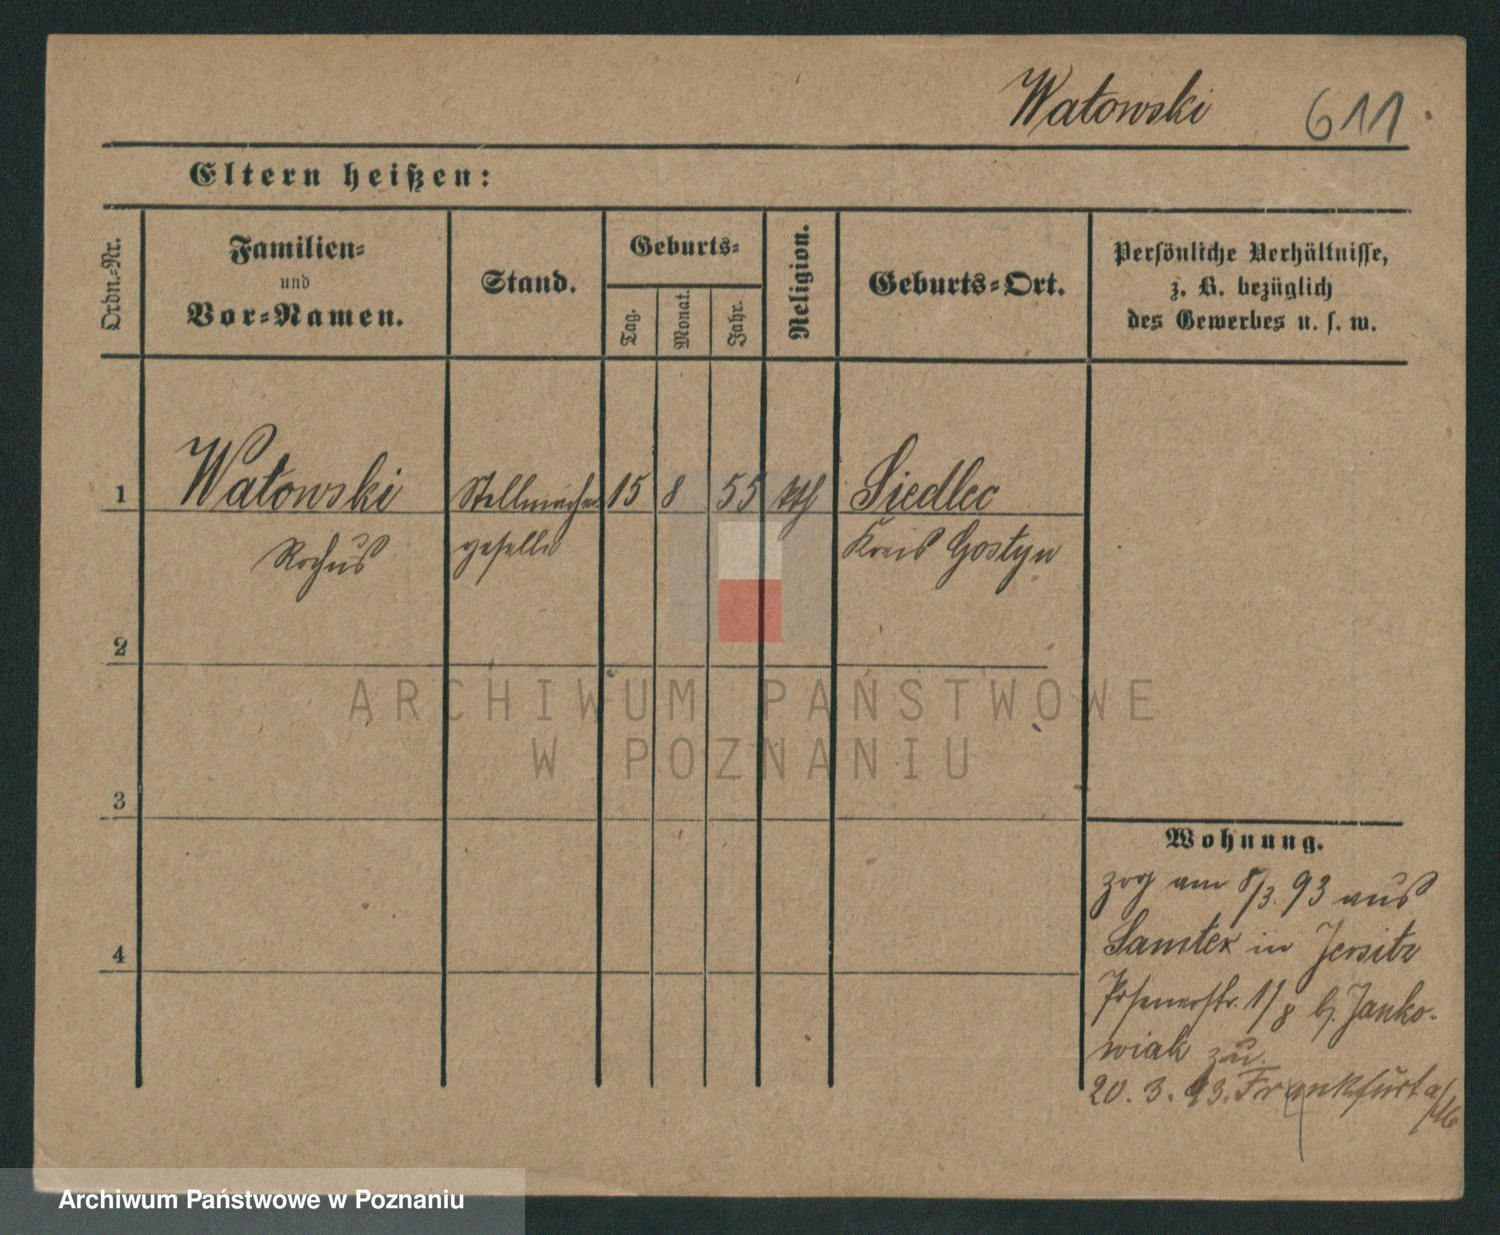 Watowski 611
Eltern heißen:
Ordn.-Nr.
Familien-
und
Vor-Namen.
Stand.
Geburts-
Tag.
Monat.
Jahr.
Religion.
Geburts-Ort.
Persönliche Verhältnisse,
z. B. bezüglich
des Gewerbes u. s. w.
1 Watowski Stellmacher 15 8 55 kth Siedlec
Rochus geselle Kreis Gostyn
2
ARCHIWUM PAŃSTWOWE
W POZNANIU
3
Wohnung.
zog am 8/3. 93 aus
4
Samter in Jersitz
Posenerstr. 1/8 b. Janko-
wiak zu.
20. 3. 93. Frankfurt a/
Archiwum Państwowe w Poznaniu